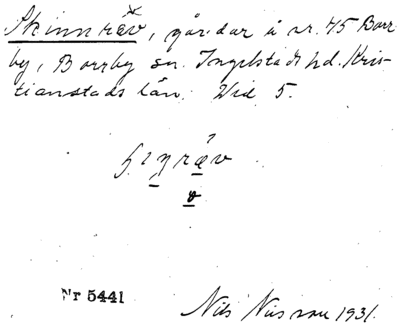 Skinnräv, gårdar å nr. 75 Borr
by, Borrby sn. Ingelstads hd. Kris-
tianstads län. Wid 5.
Nr 5441
Nils Nilsson 1931.